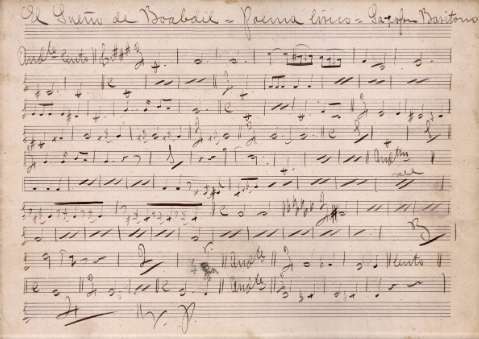 El Sueño de Boabdil = Poema lírico = Saxofon Baritono
Andte lento
Andte
Andte lento
Andte
V. P.